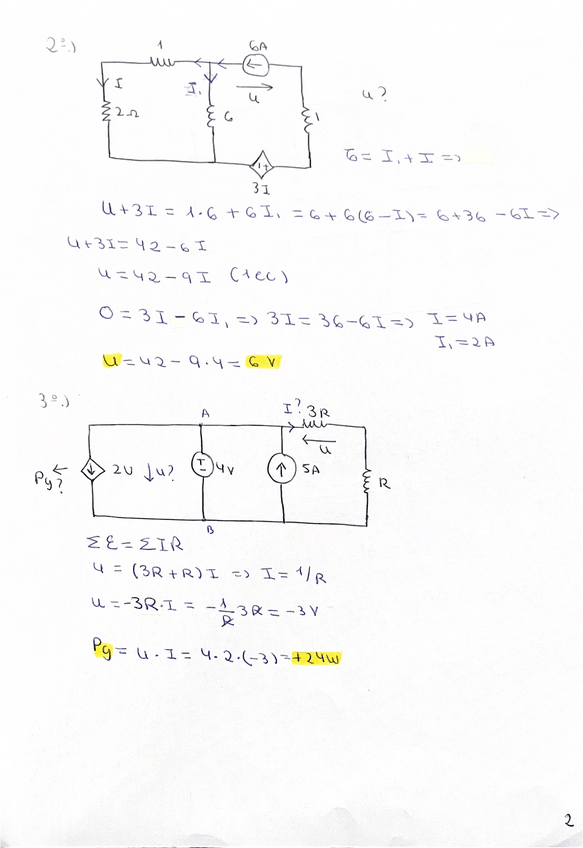 2º)
1
6A
I
I₁
u
2Ω
6
1
3I
u?
6 = I₁ + I =>
U + 3I = 1·6 + 6I₁ = 6 + 6(6 - I) = 6 + 36 - 6I =>
u + 3I = 42 - 6I
u = 42 - 9I (1ec)
0 = 3I - 6I₁ => 3I = 36 - 6I => I = 4A
I₁ = 2A
U = 42 - 9·4 = 6V
3º)
A
I? 3R
u
Pg?
2U
u?
4V
5A
R
B
Σε = ΣIR
4 = (3R + R)I => I = 1/R
u = -3R·I = -1/R 3R = -3V
Pg = U·I = 4·2·(-3) = +24W
2